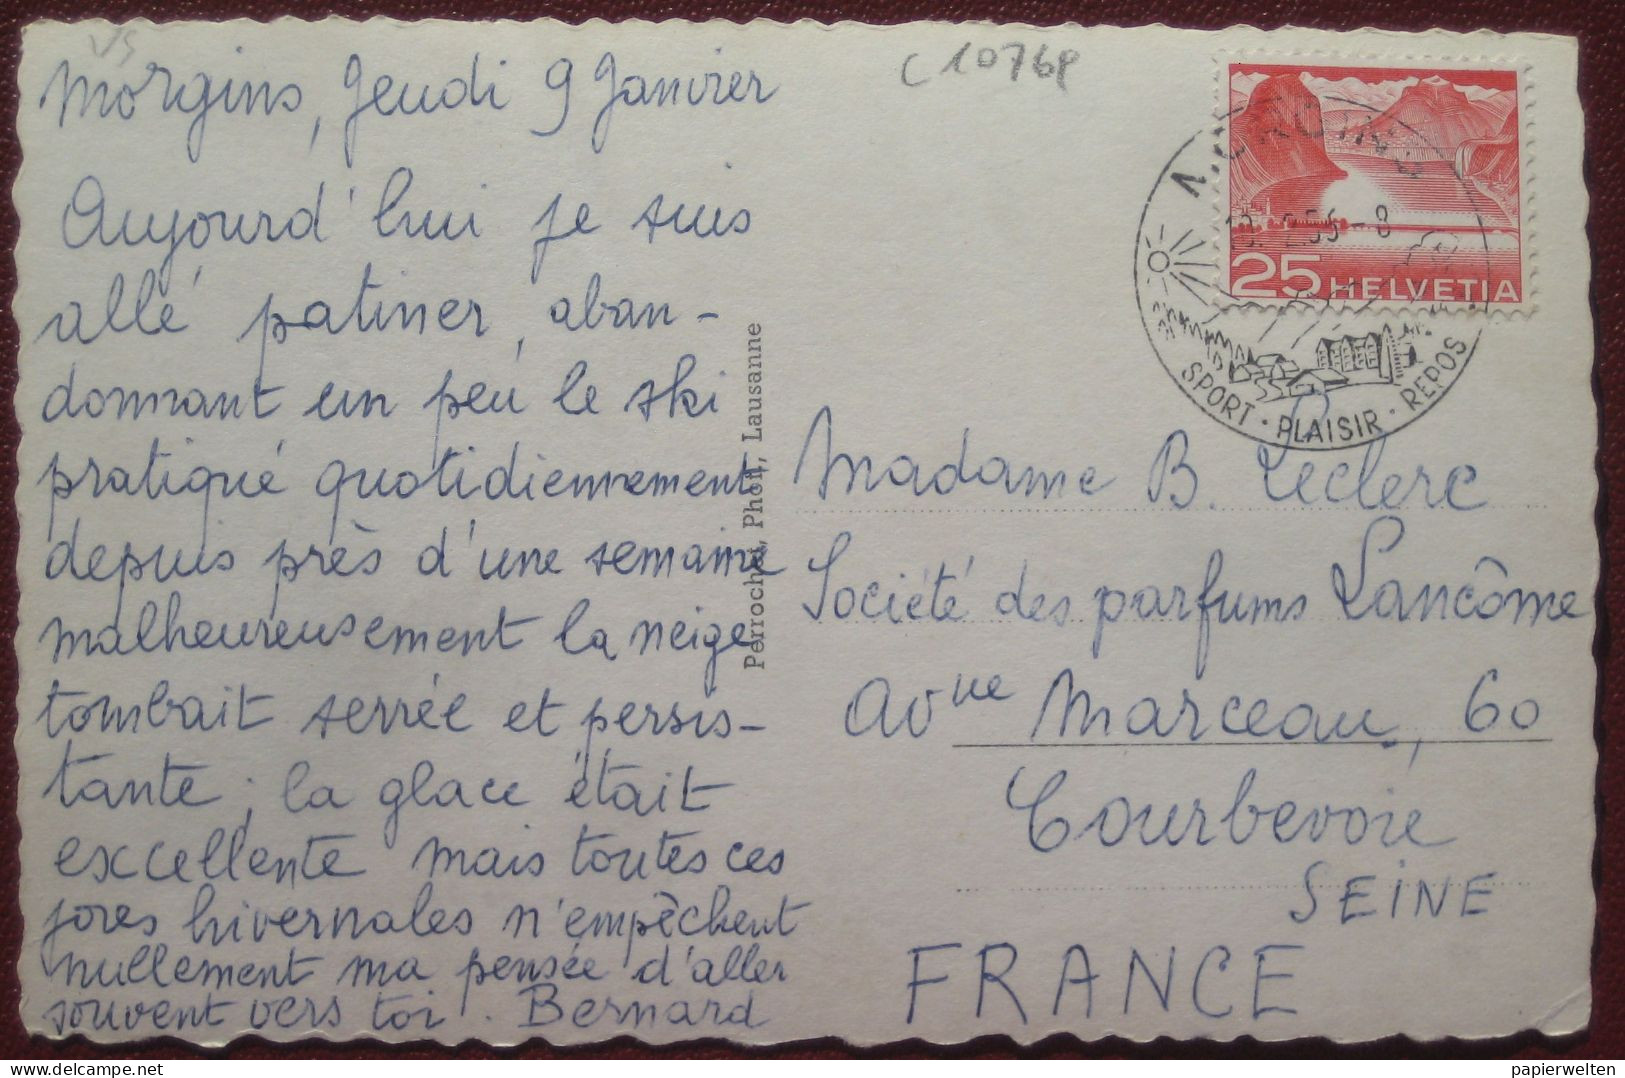 VS
Morgins, Jeudi 9 Janvier
Aujourd'hui je suis
allé patiner, aban-
donnant un peu le ski
pratiqué quotidiennement
depuis près d'une semaine
malheureusement la neige
tombait serrée et persis-
tante ; la glace était
excellente mais toutes ces
joies hivernales n'empêchent
nullement ma pensée d'aller
souvent vers toi. Bernard
Perrochet, Phot., Lausanne
C 1076p
25 HELVETIA
MORGINS
55-8
SPORT · PLAISIR · REPOS
Madame B. Leclerc
Société des parfums Lancôme
Avnue Marceau, 60
Courbevoie
SEINE
FRANCE
papierwelten